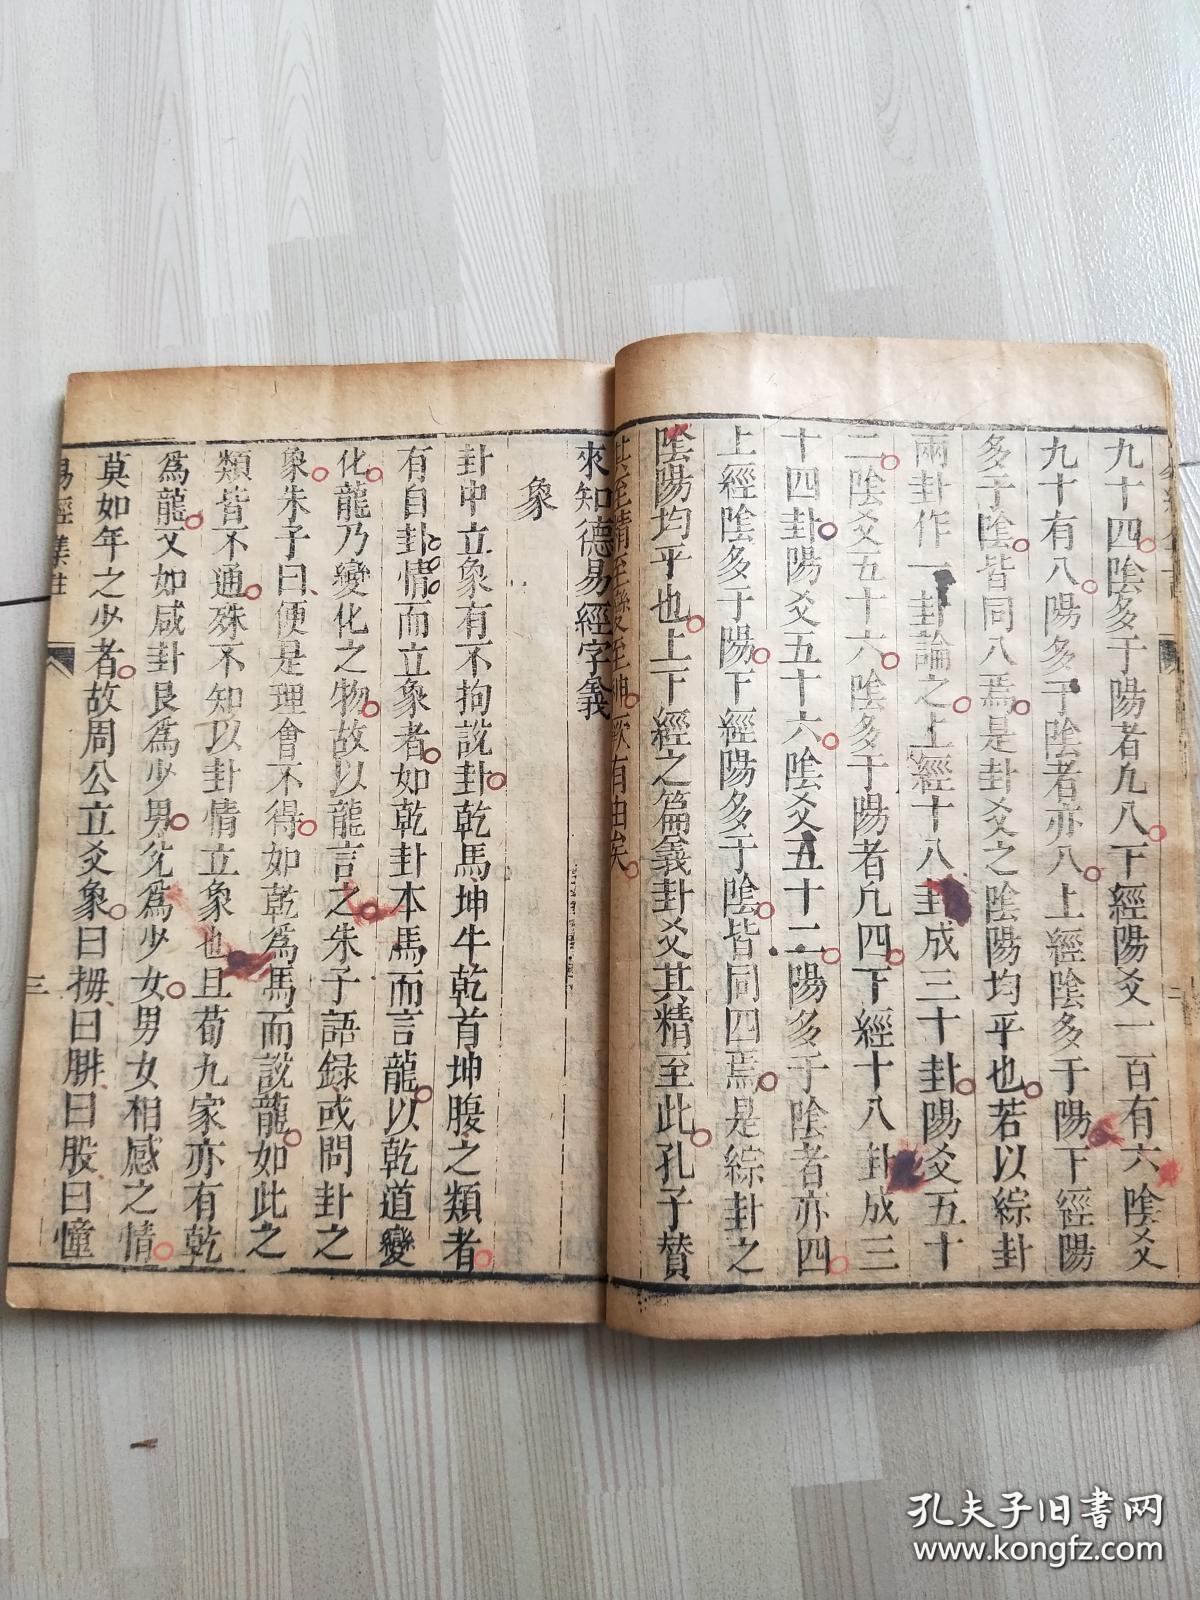 九十四陰多于陽者凡八下經陽爻一百有六陰爻
九十有八陽多于陰者亦八上經陰多于陽下經陽
多于陰皆同八焉是卦爻之陰陽均平也若以綜卦
兩卦作一卦論之上經十八卦成三十卦陽爻五十
二陰爻五十六陰多于陽者凡四下經十八卦成三
十四卦陽爻五十六陰爻五十二陽多于陰者亦四
上經陰多于陽下經陽多于陰皆同四焉是綜卦之
陰陽均平也上下經之篇義卦爻其精至此孔子贊
其至精至變至神厥有由矣
來知德易經字義
象
卦中立象有不拘說卦乾馬坤牛乾首坤腹之類者
有自卦情而立象者如乾卦本馬而言龍以乾道變
化龍乃變化之物故以龍言之朱子語録或問卦之
象朱子曰便是理會不得如乾爲馬而說龍如此之
類皆不通殊不知以卦情立象也且荀九家亦有乾
爲龍又如咸卦艮爲少男兌爲少女男女相感之情
莫如年之少者故周公立爻象曰拇曰腓曰股曰憧
易經集註
三
孔夫子旧书网
www.kongfz.com